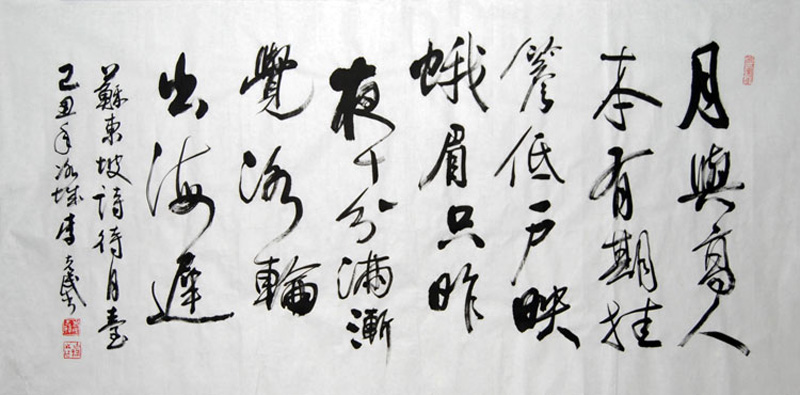 月與高人
本有期挂
簷低戶映
蛾眉只昨
夜十分滿漸
覺冰輪
出海遲
蘇東坡詩待月臺
己丑年冰城